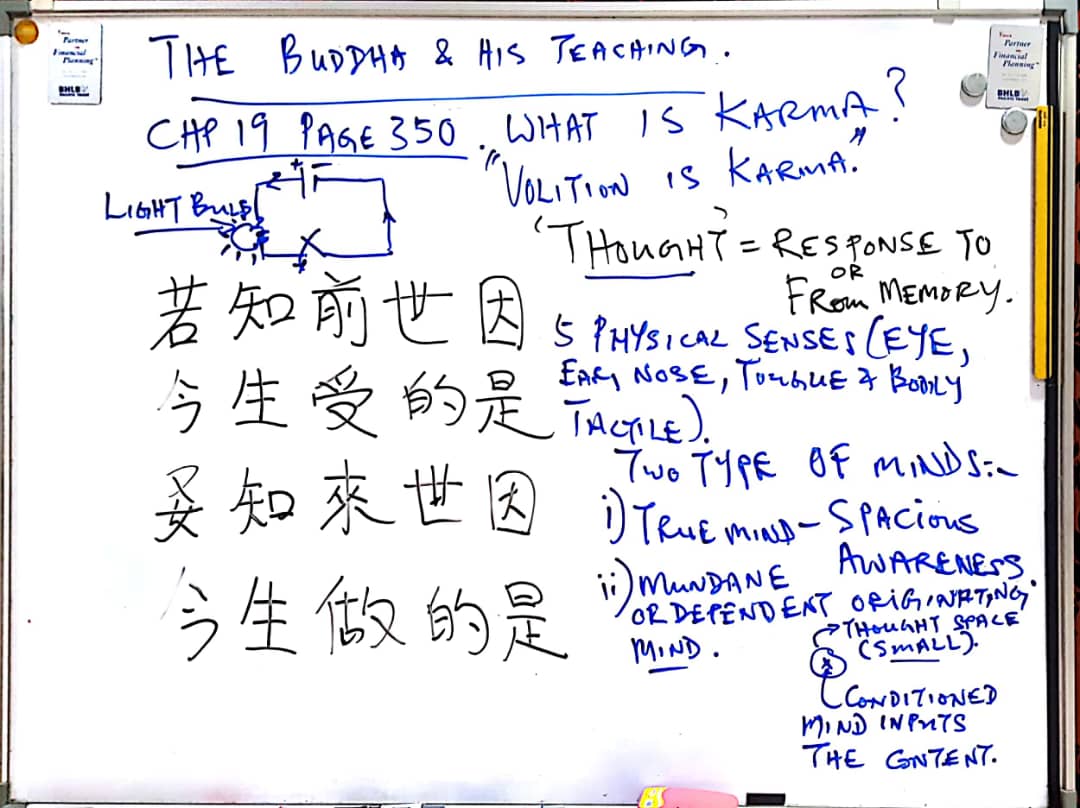 THE BUDDHA & HIS TEACHING.
CHP 19 PAGE 350. WHAT IS KARMA?
"VOLITION IS KARMA."
LIGHT BULB
'THOUGHT' = RESPONSE TO
OR
FROM MEMORY.
若知前世因
今生受的是
知來世因
今生做的是
5 PHYSICAL SENSES (EYE,
EAR, NOSE, TONGUE & BODILY
TACTILE).
TWO TYPE OF MINDS:-
i) TRUE MIND - SPACIOUS
AWARENESS.
ii) MUNDANE
OR DEPENDENT ORIGINATING
MIND.
THOUGHT SPACE
(SMALL).
CONDITIONED
MIND INPUTS
THE CONTENT.
Your
Partner
in
Financial
Planning
BHLB
Your
Partner
in
Financial
Planning
BHLB